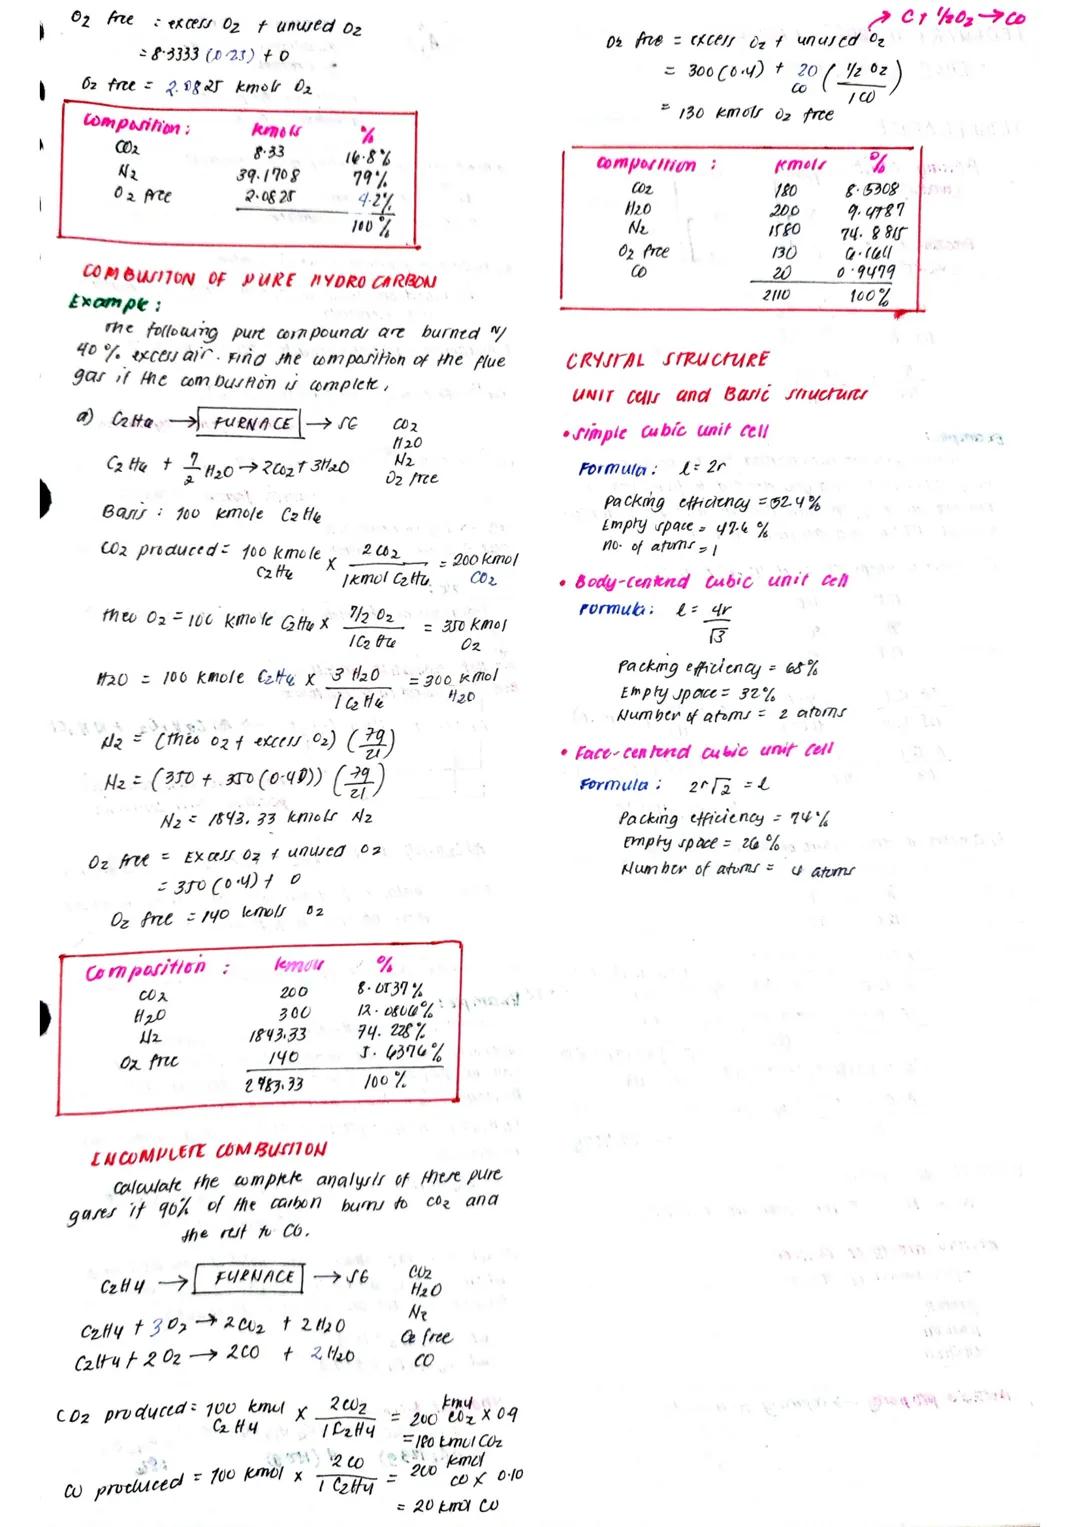 O2 free : excess O2 + unused O2
= 8.3333 (0.25) + 0
O2 free = 2.0825 kmols O2
Composition : kmols %
CO2 8.33 16.8%
N2 39.1708 79%
O2 free 2.0825 4.2%
100%
COMBUSITON OF PURE HYDRO CARBON
Example :
The following pure compounds are burned w/
40% excess air. Find the composition of the flue
gas if the combustion is complete,
a) C2H6 → FURNACE → SG CO2
H2O
N2
O2 free
C2H6 + 7/2 H2O → 2CO2 + 3H2O
Basis : 100 kmole C2H6
CO2 produced = 100 kmole C2H6 x 2CO2 / 1kmol C2H6 = 200 kmol CO2
theo O2 = 100 kmole C2H6 x 7/2 O2 / 1C2H6 = 350 kmol O2
H2O = 100 kmole C2H6 x 3 H2O / 1 C2H6 = 300 kmol H2O
N2 = (theo O2 + excess O2) (79/21)
N2 = (350 + 350 (0.40)) (79/21)
N2 = 1843.33 kmols N2
O2 free = Excess O2 + unused O2
= 350 (0.4) + 0
O2 free = 140 kmols O2
Composition : kmols %
CO2 200 8.0537%
H2O 300 12.0806%
N2 1843.33 74.228%
O2 free 140 5.6376%
2483.33 100%
INCOMPLETE COMBUSITON
Calculate the complete analysis of these pure
gases if 90% of the carbon burns to CO2 and
the rest to CO.
C2H4 → FURNACE → SG CO2
H2O
N2
O2 free
CO
C2H4 + 3O2 → 2CO2 + 2H2O
C2H4 + 2O2 → 2CO + 2H2O
CO2 produced = 100 kmol C2H4 x 2CO2 / 1C2H4 = 200 kmol CO2 x 0.9
= 180 kmol CO2
CO produced = 100 kmol x 2CO / 1 C2H4 = 200 kmol CO x 0.10
= 20 kmol CO
C + 1/2O2 → CO
O2 free = excess O2 + unused O2
= 300 (0.4) + 20 CO (1/2 O2 / 1CO)
= 130 kmols O2 free
Composition : kmols %
CO2 180 8.5308
H2O 200 9.4787
N2 1580 74.8815
O2 free 130 6.1611
CO 20 0.9479
2110 100%
CRYSTAL STRUCTURE
UNIT cells and Basic structures
• Simple cubic unit cell
Formula : l = 2r
Packing efficiency = 52.4%
Empty space = 47.6%
no. of atoms = 1
• Body-centered cubic unit cell
Formula : l = 4r/√3
Packing efficiency = 68%
Empty space = 32%
Number of atoms = 2 atoms
• Face-centered cubic unit cell
Formula : 2r√2 = l
Packing efficiency = 74%
Empty space = 26%
Number of atoms = 4 atoms